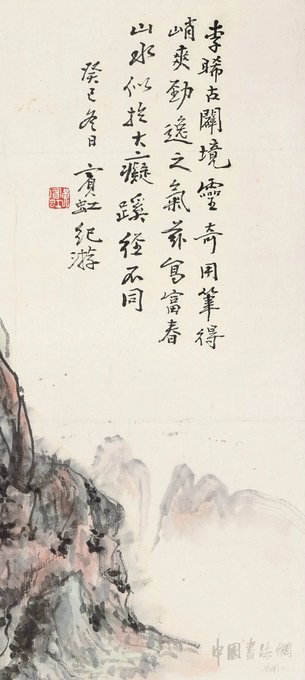 李晞古闢境靈奇用筆得
峭爽勁逸之氣茲寫富春
山水似於大癡蹊徑不同
癸巳冬日賓虹紀游
中國書法網